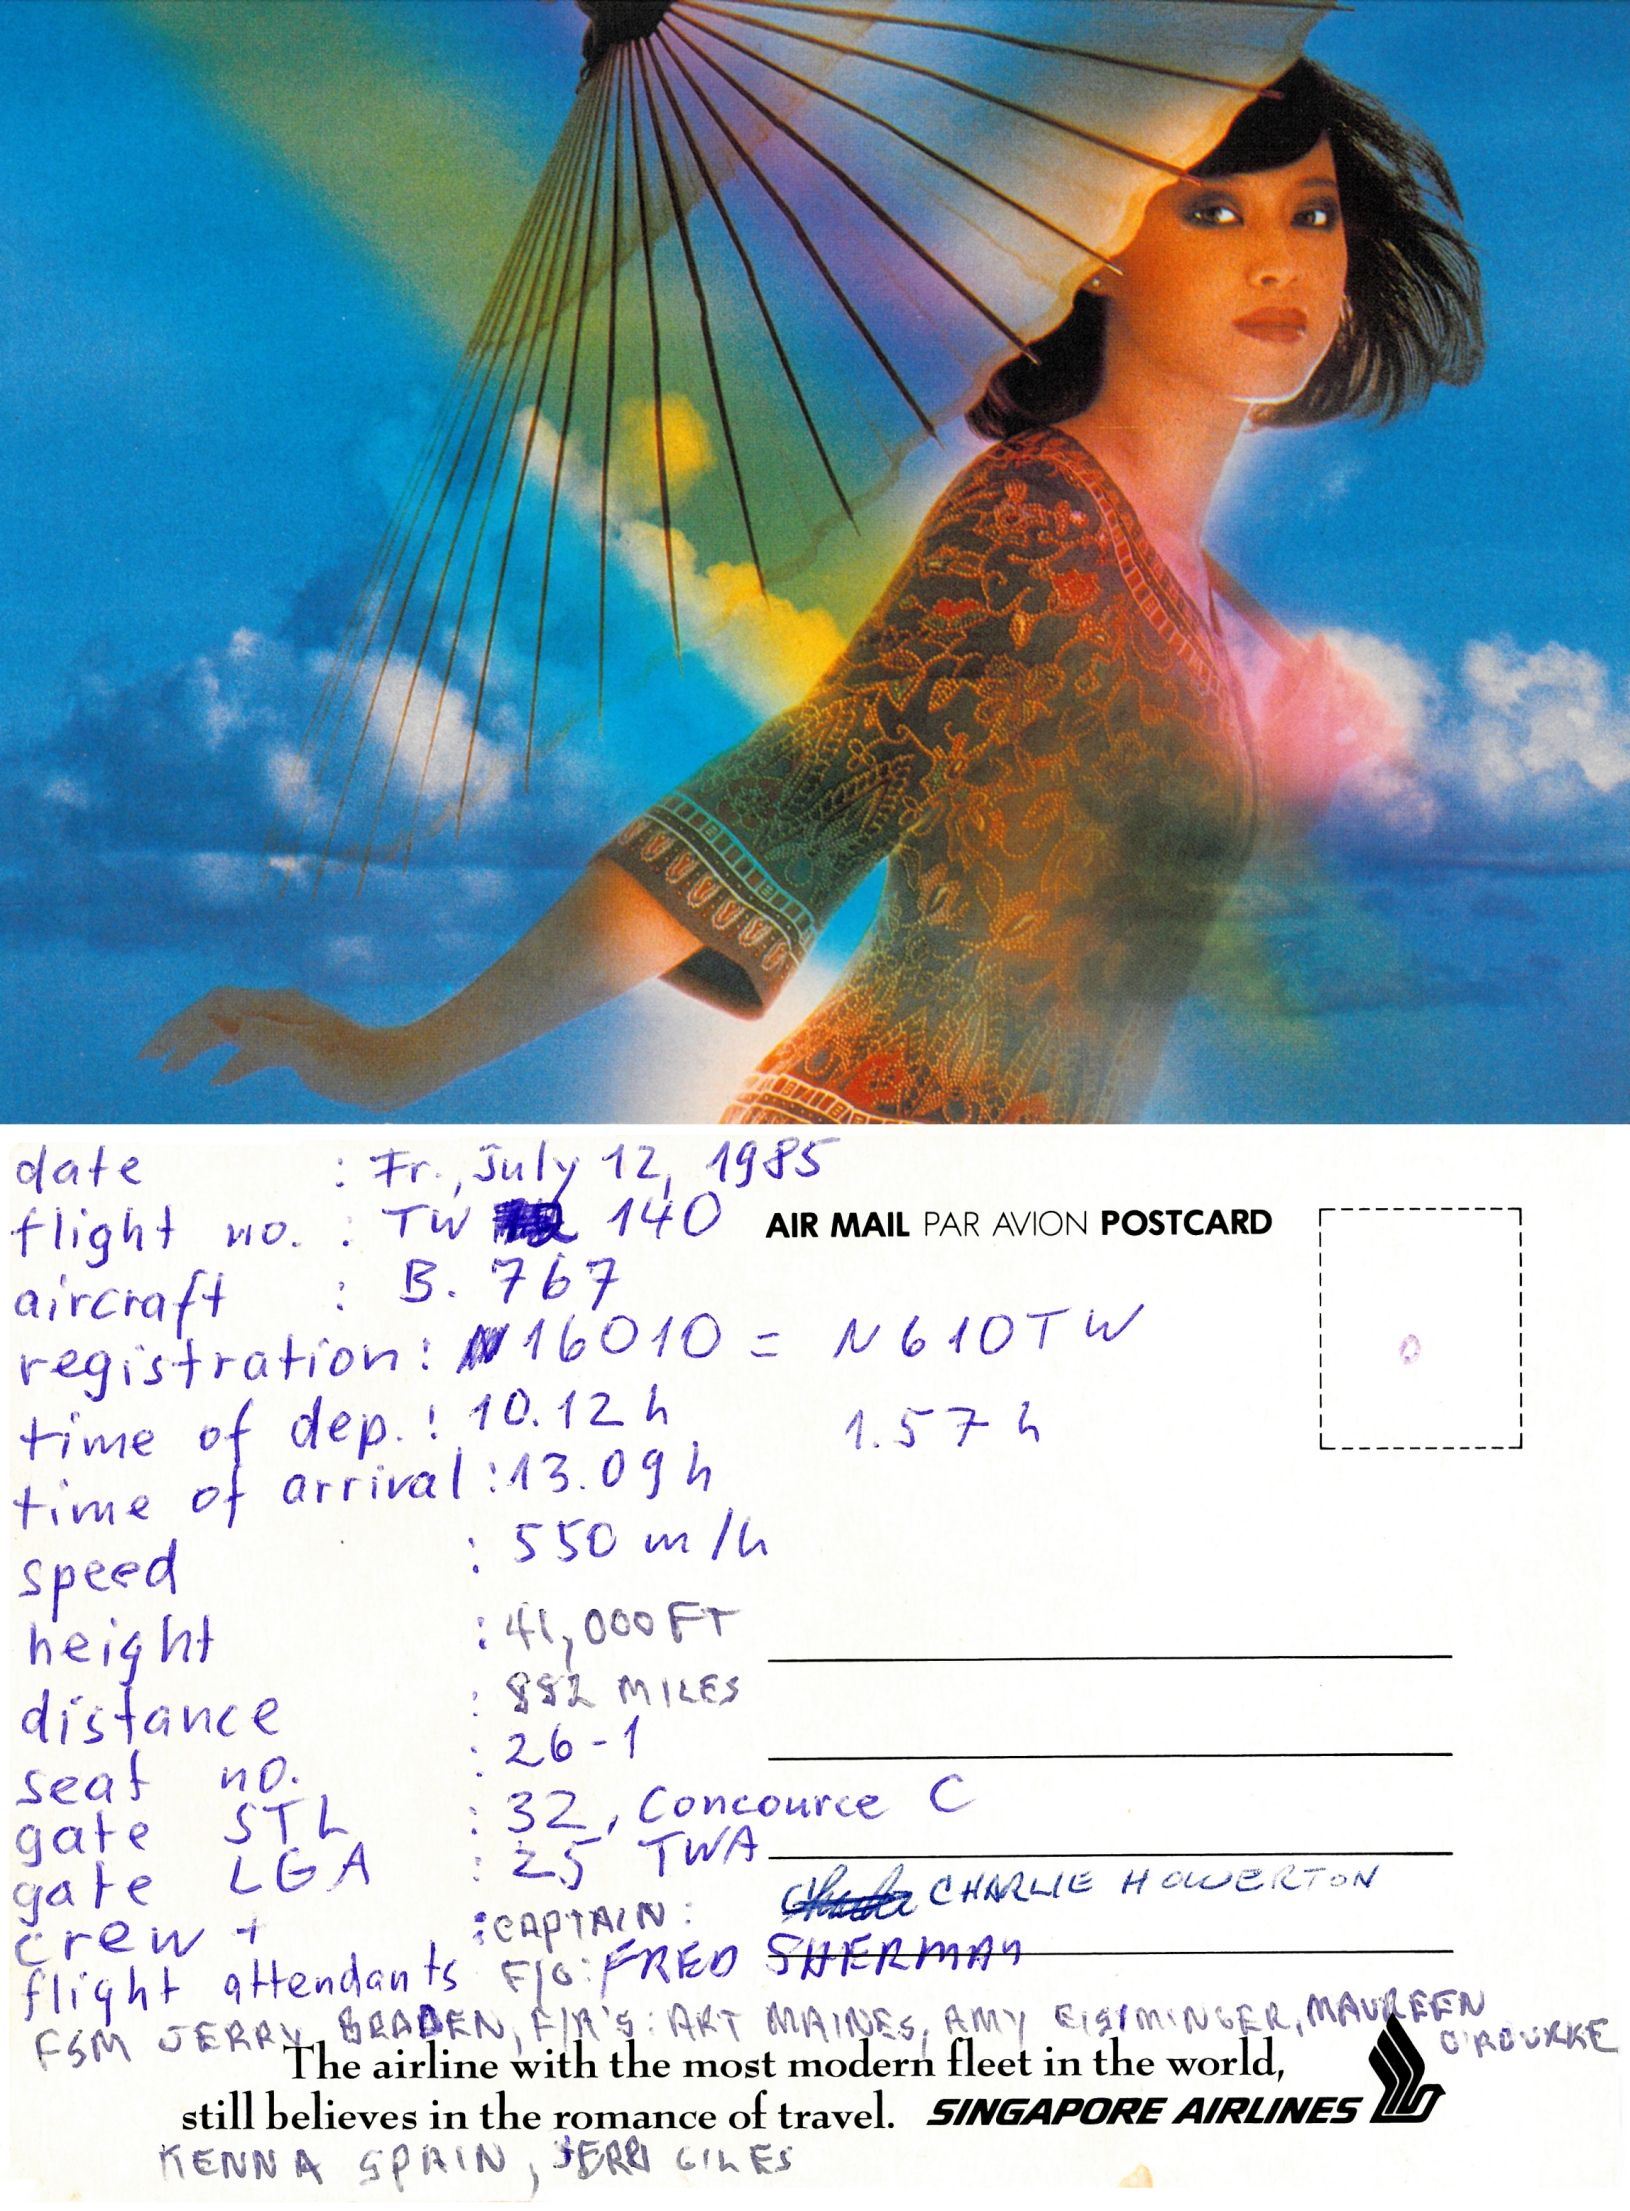 date : Fr., July 12, 1985
flight no. : TW 140
AIR MAIL PAR AVION POSTCARD
aircraft : B. 767
registration: N16010 = N610TW
time of dep.: 10.12 h 1.57 h
time of arrival: 13.09 h
speed : 550 m/h
height : 41,000 FT
distance : 882 MILES
seat no. : 26-1
gate STL : 32, Concource C
gate LGA : 25 TWA
crew + : CAPTAIN: CHARLIE HOWERTON
flight attendants F/O: FRED SHERMAN
FSM JERRY BRADEN, F/A'S: ART MAINES, AMY EISIMINGER, MAUREEN
O'ROURKE
The airline with the most modern fleet in the world,
still believes in the romance of travel. SINGAPORE AIRLINES
KENNA SPAIN, JERRI GILES